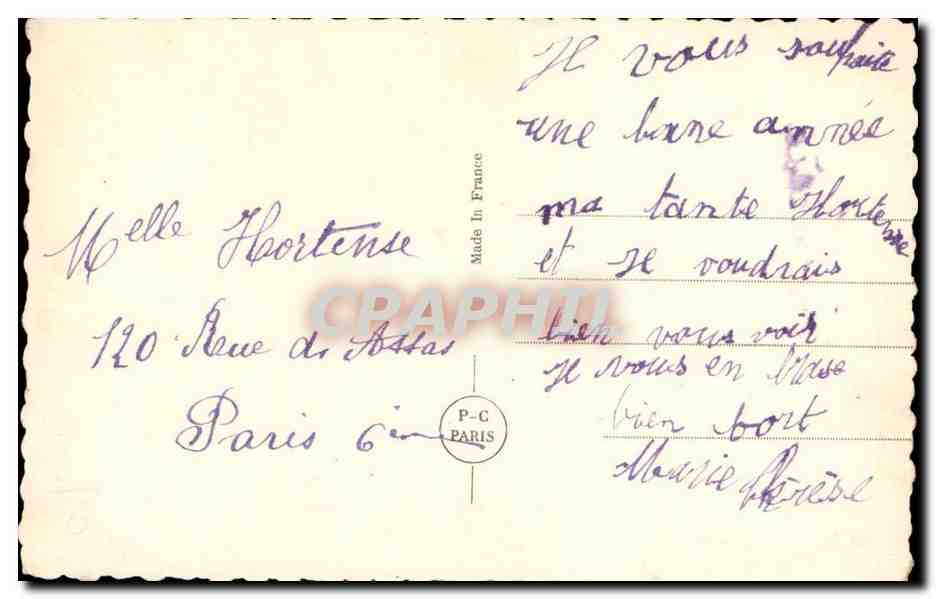 Je vous souhaite
une bone année
ma tante Hortense
et Je voudrais
bien vous voir
Je vous en brase
bien fort
Marie Thérèse
Melle Hortense
120 Rue de Assas
Paris 6ième
Made In France
P-C
PARIS
CPAPHIL